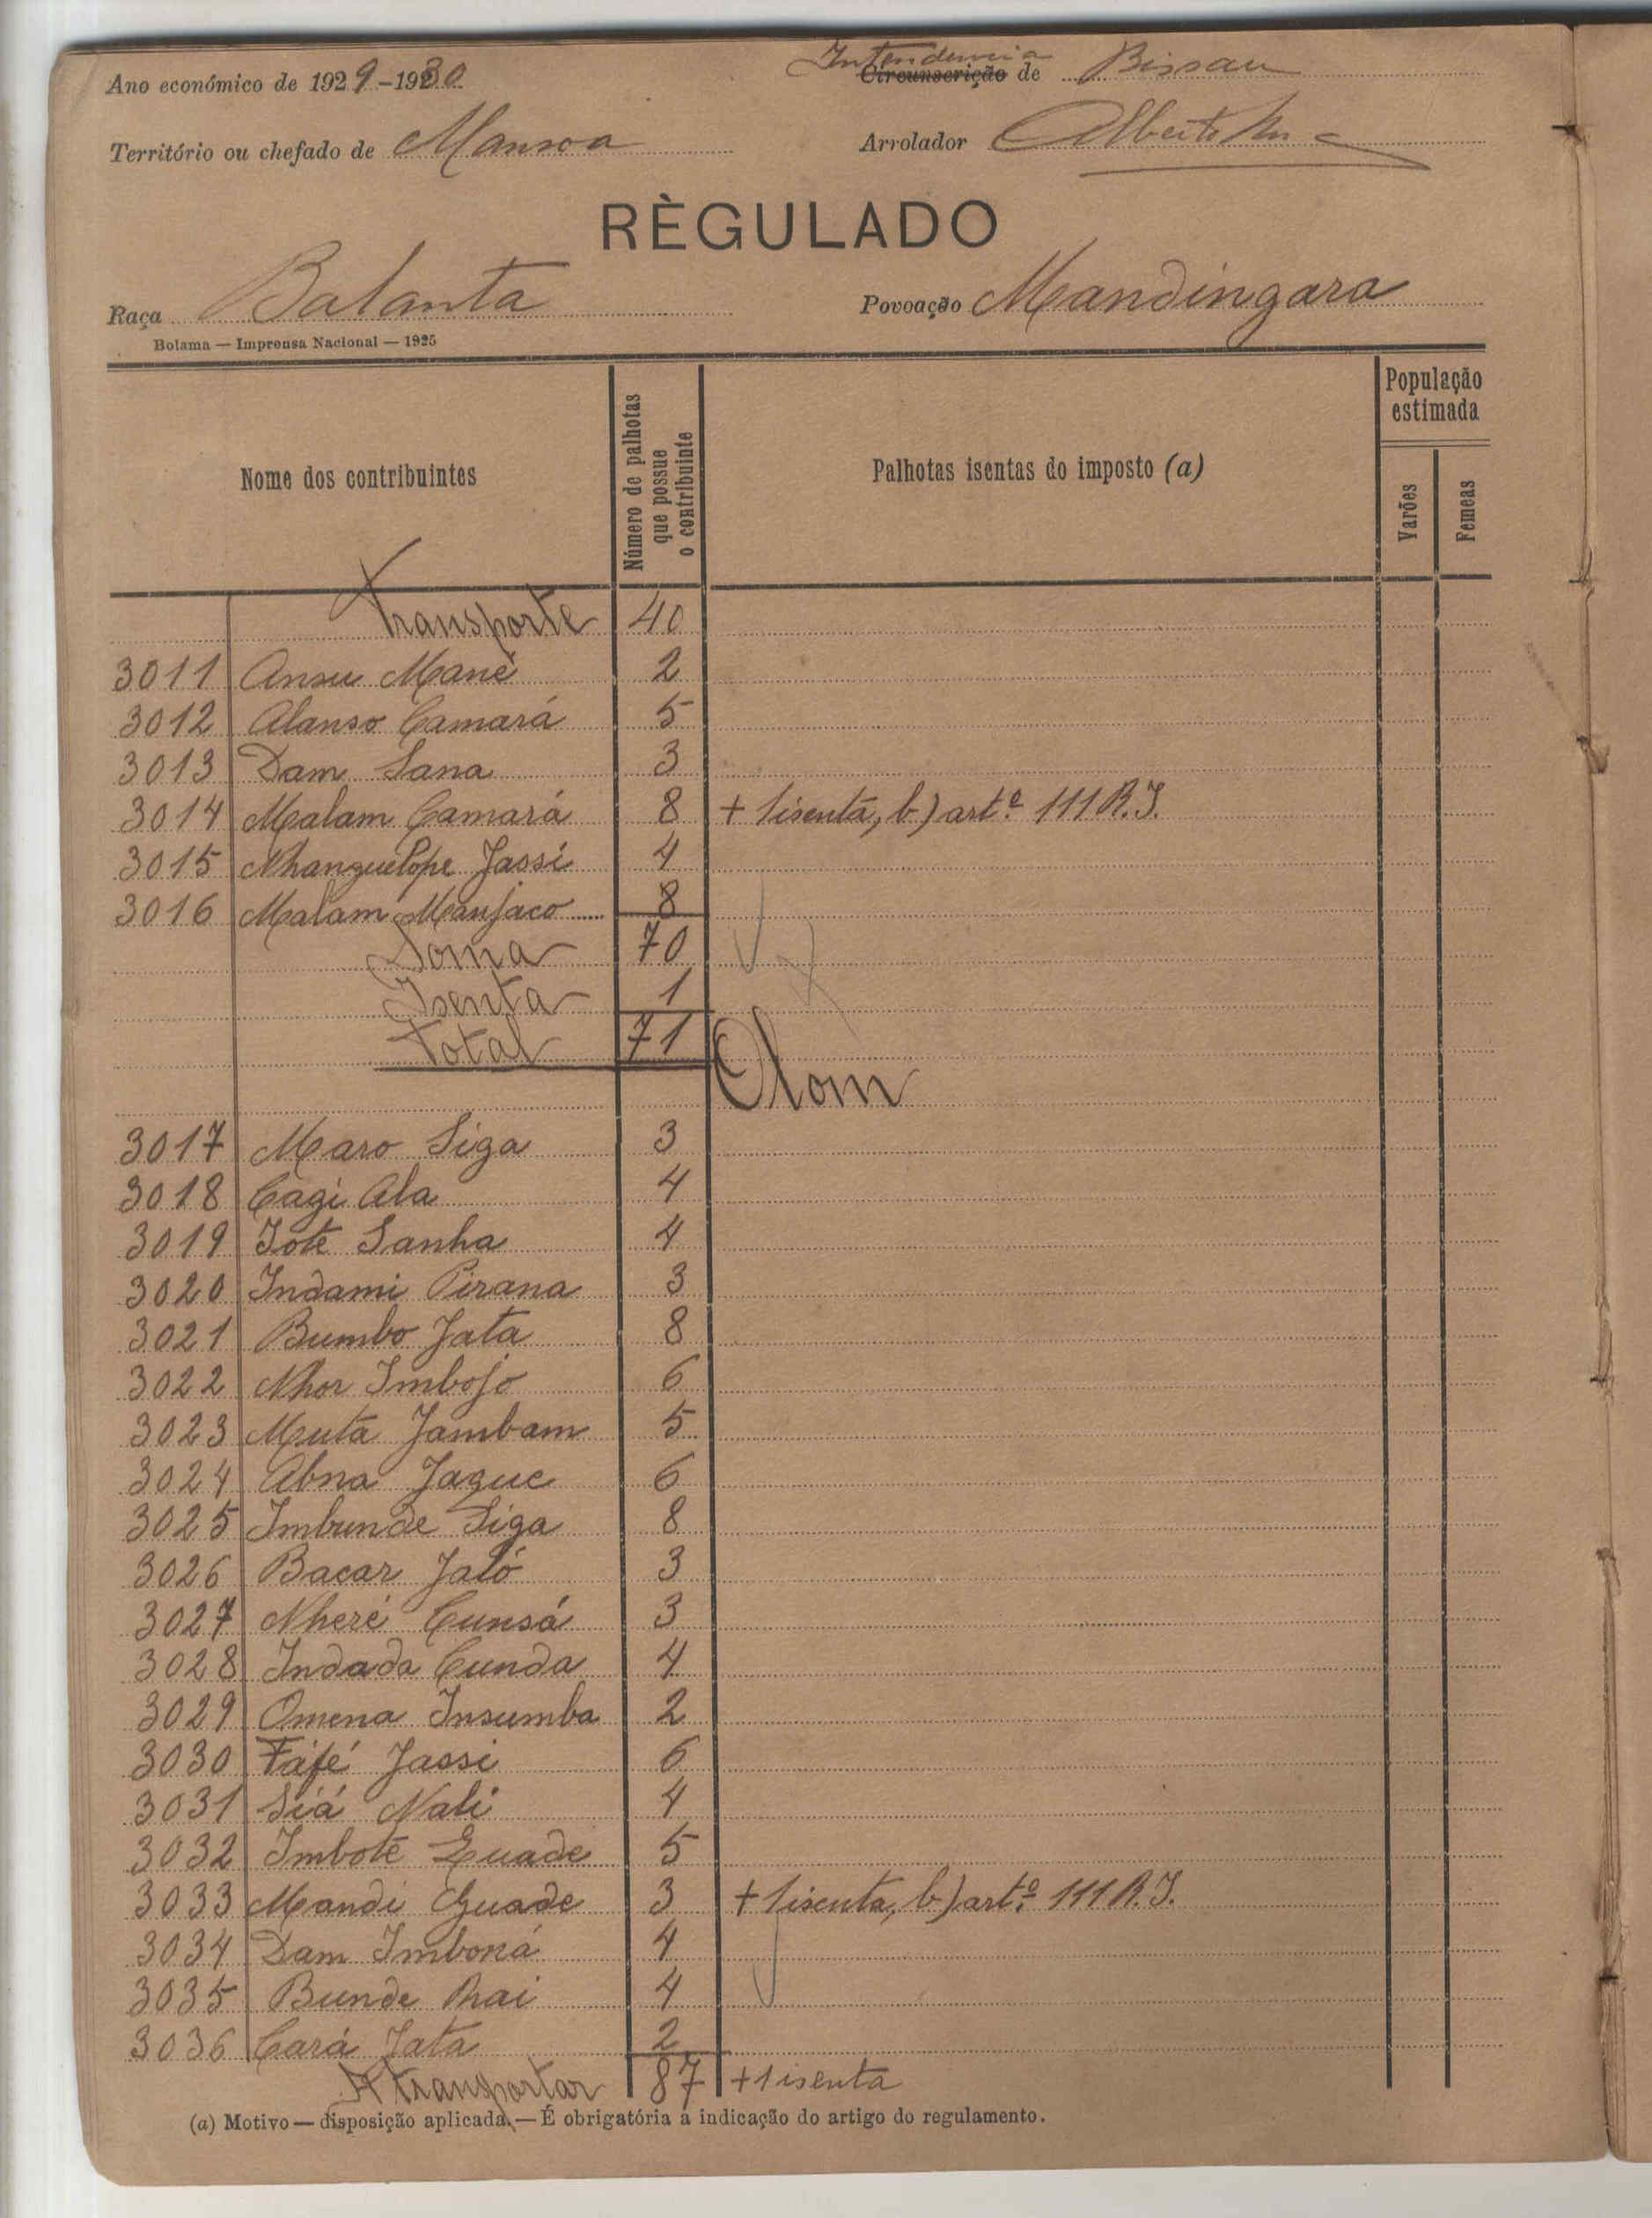 Ano económico de 1929-1930 Intendencia Circunscrição de Bissau
Território ou chefado de Mansoa Arrolador Alberto
RÈGULADO
Raça Balanta Povoação Mandingara
Bolama — Imprensa Nacional — 1925
Nome dos contribuintes Número de palhotas que possue o contribuinte Palhotas isentas do imposto (a) População estimada Varões Femeas
Transporte 40
3011 Ansu Mané 2
3012 Alanso Camará 5
3013 Dam Sana 3
3014 Malam Camará 8 + 1 isenta, b) artº 111 R.I.
3015 Nhanguelope Jassi 4
3016 Malam Manjaco 8
Soma 70
Isenta 1
Total 71
Olom
3017 Maro Siga 3
3018 Cagi Ala 4
3019 Iote Sanha 4
3020 Indami Pirana 3
3021 Bumbo Jata 8
3022 Nhor Imbojo 6
3023 Muta Jambam 5
3024 Abna Jague 6
3025 Imbunde Siga 8
3026 Bacar Jaló 3
3027 Nheré Cunsá 3
3028 Indada Cunda 4
3029 Omena Insumba 2
3030 Fáfé Jassi 6
3031 Siá Nali 4
3032 Imbote Guade 5
3033 Mandi Guade 3 + 1 isenta, b) artº 111 R.I.
3034 Dam Imboná 4
3035 Bunde Rai 4
3036 Cará Jata 2
A transportar 87 + 1 isenta
(a) Motivo — disposição aplicada. — É obrigatória a indicação do artigo do regulamento.